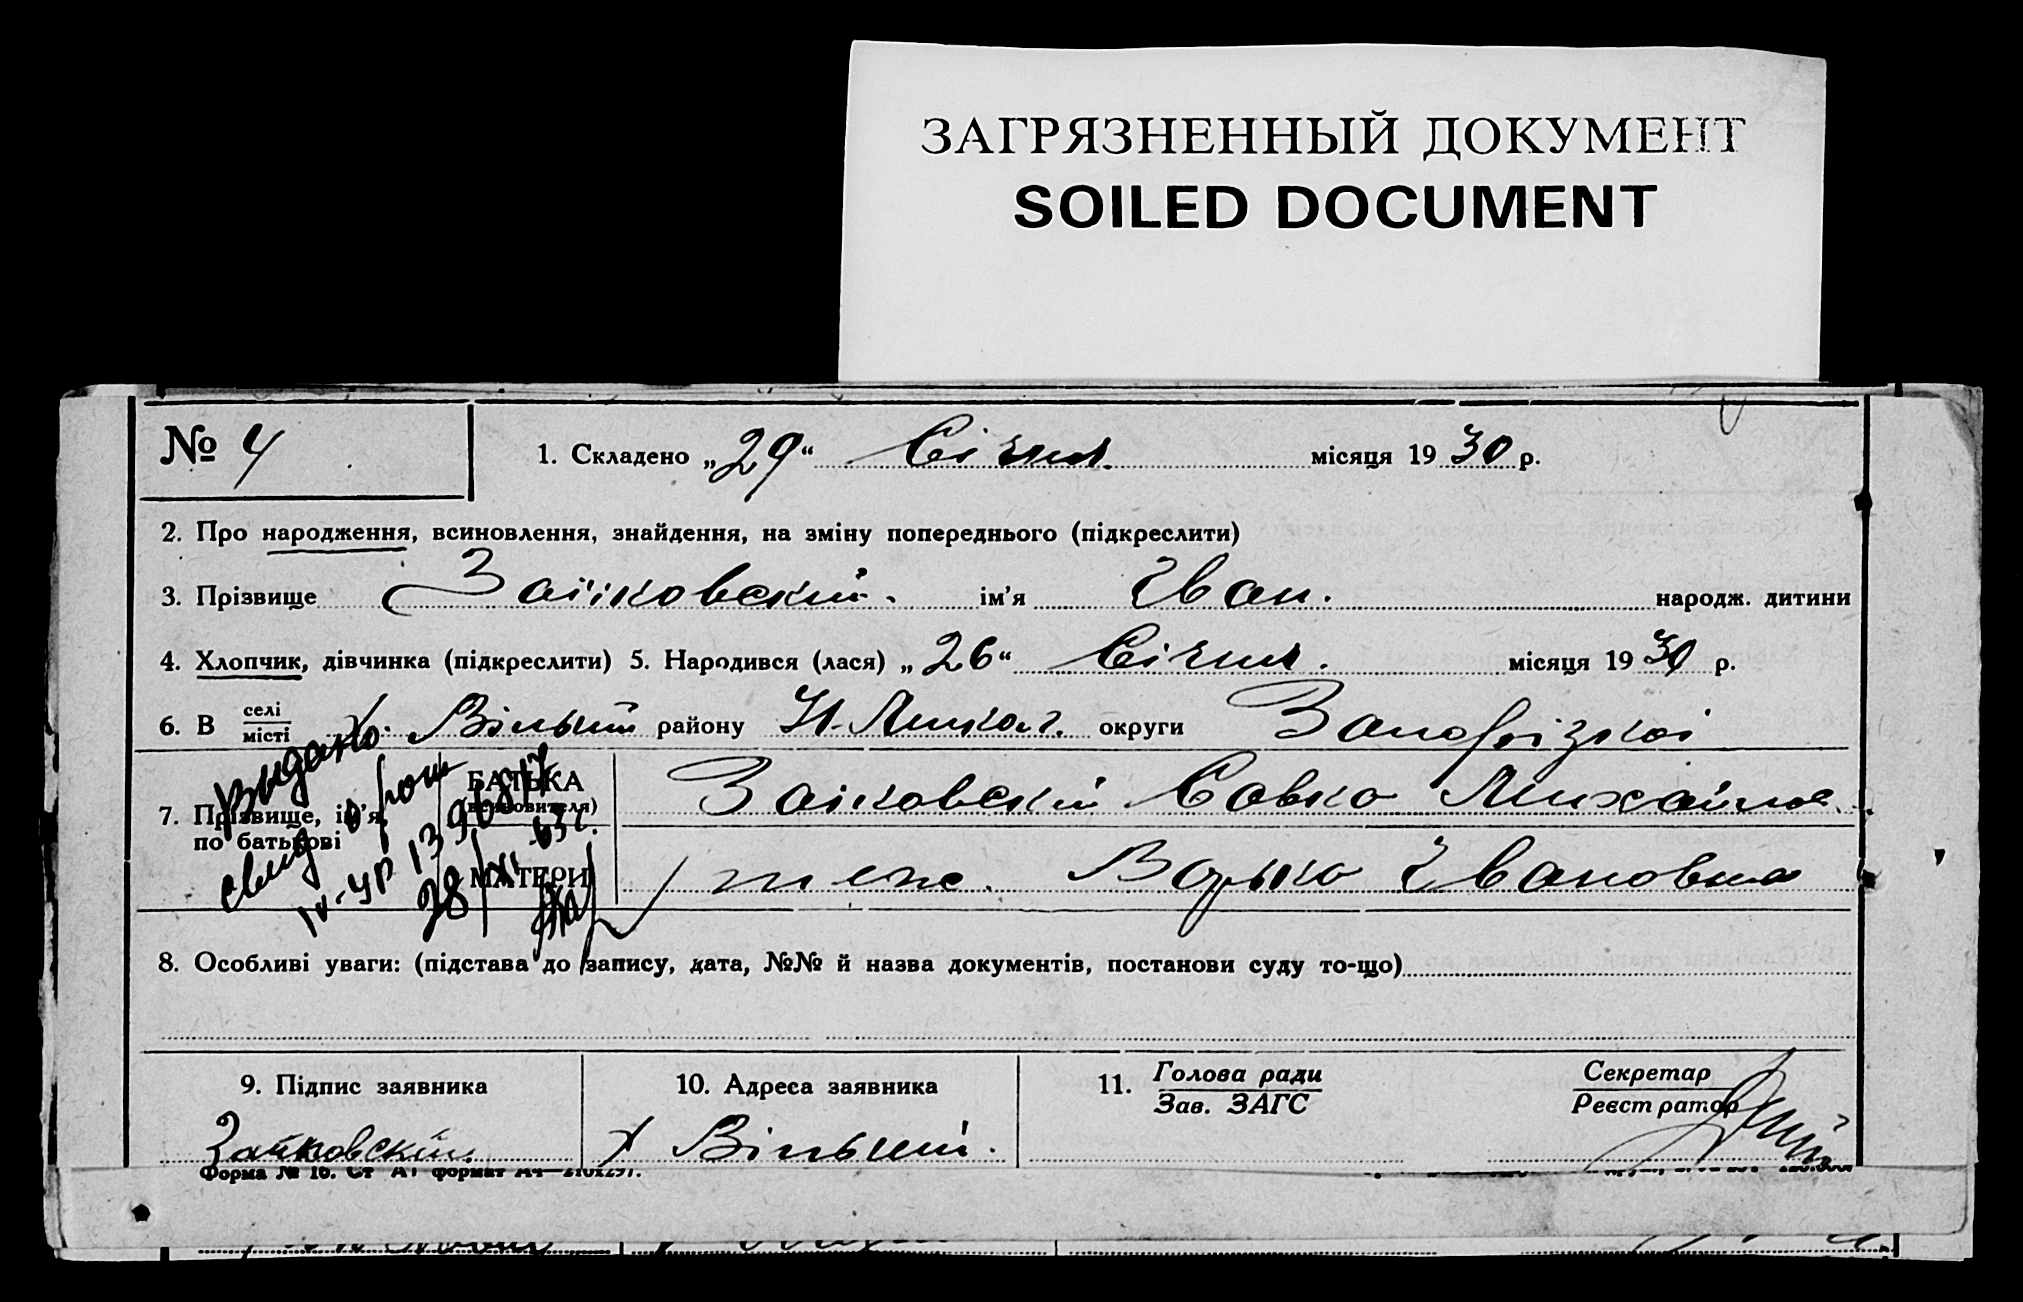 ЗАГРЯЗНЕННЫЙ ДОКУМЕНТ
SOILED DOCUMENT
№ 4
1. Складено „29“ Січня місяця 1930 р.
2. Про народження, всиновлення, знайдення, на зміну попереднього (підкреслити)
3. Прізвище Зайковский. ім’я Іван. народж. дитини
4. Хлопчик, дівчинка (підкреслити) 5. Народився (лася) „26“ Січня. місяця 1930 р.
6. В селі місті х. Вільний району округи Запорізкоі
7. Прізвище, ім’я, по батькові
БАТЬКА (всиновителя) Зайковскій Савко
МАТЕРИ теж. Івановна
Видано
8. Особливі уваги: (підстава до запису, дата, №№ й назва документів, постанови суду то-що)
9. Підпис заявника
10. Адреса заявника
11. Голова ради Зав. ЗАГС
Секретар Реєстратор
Зайковский
х Вільний.
Форма № 16. Ст А1 формат А4—210х297.